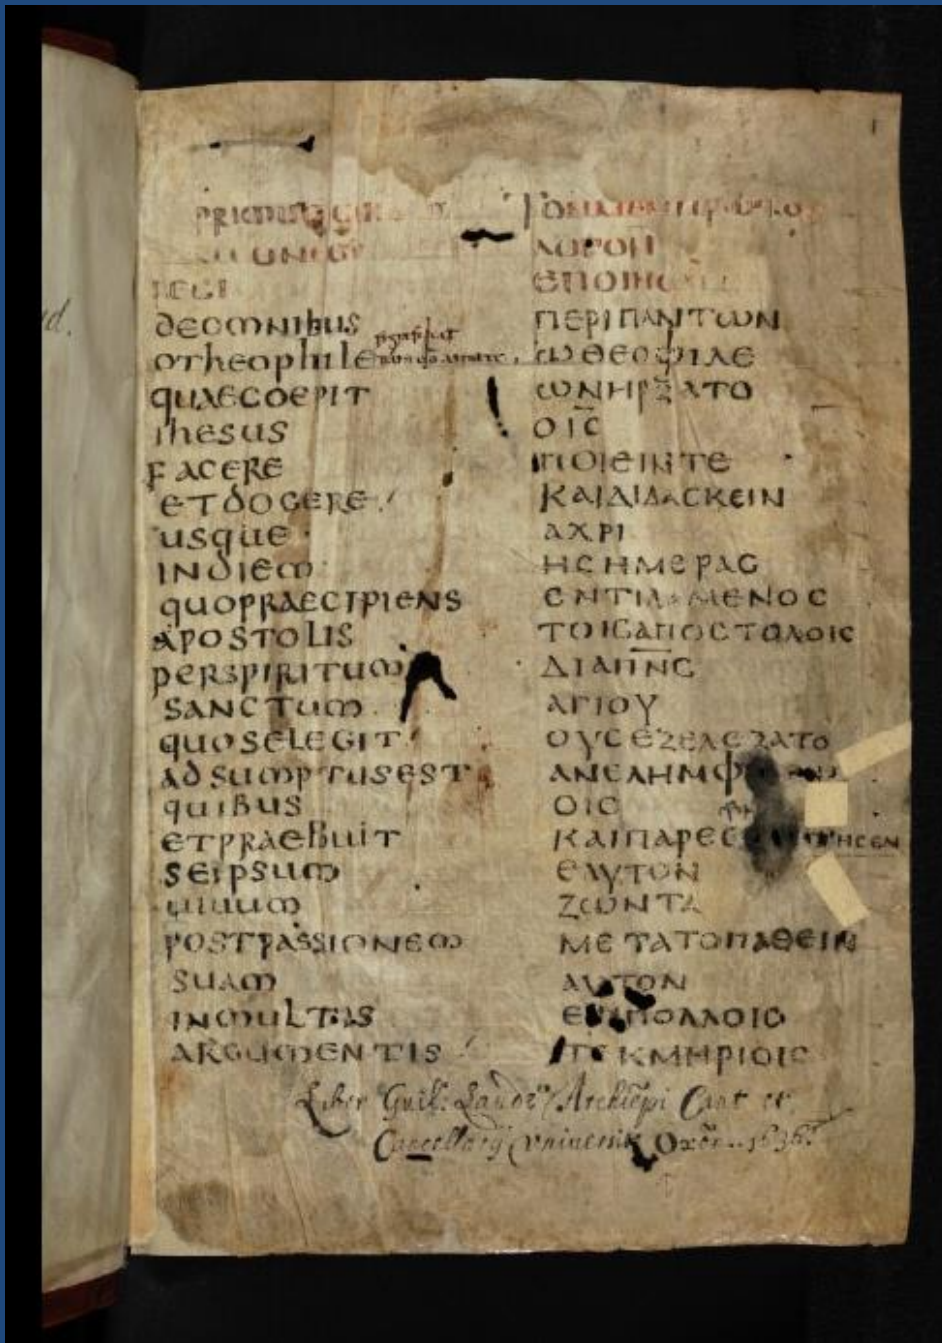 1
DEOMNIBUS
OTHEOPHILE
QUAECOEPIT
IHESUS
FACERE
ETDOCERE
USQUE
INDIEM
QUOPRAECIPIENS
APOSTOLIS
PERSPIRITUM
SANCTUM
QUOSELEGIT
ADSUMPTUSEST
QUIBUS
ETPRAEBUIT
SEIPSUM
UIUUM
POSTPASSIONEM
SUAM
INMULTIS
ARGUMENTIS
ΛΟΓΟΝ
ΠΕΡΙΠΑΝΤΩΝ
ΩΘΕΟΦΙΛΕ
ΩΝΗΡΞΑΤΟ
ΟΙ̅Ϲ̅
ΠΟΙΕΙΝΤΕ
ΚΑΙΔΙΔΑϹΚΕΙΝ
ΑΧΡΙ
ΗϹΗΜΕΡΑϹ
ΕΝΤΙΛΑΜΕΝΟϹ
ΤΟΙϹΑΠΟϹΤΟΛΟΙϹ
ΔΙΑΠ̅Ν̅Ϲ̅
ΑΓΙΟΥ
ΟΥϹΕΞΕΛΕΞΑΤΟ
ΑΝΕΛΗΜΦ
ΟΙϹ
ΚΑΙΠΑΡΕϹ
ΕΑΥΤΟΝ
ΖΩΝΤΑ
ΜΕΤΑΤΟΠΑΘΕΙΝ
ΑΥΤΟΝ
ΕΝΠΟΛΛΟΙϹ
ΤΕΚΜΗΡΙΟΙϹ
Liber Guil: Laudi Archiēpi Cant et
Cancellarij Vniuersit Oxon. 1636.